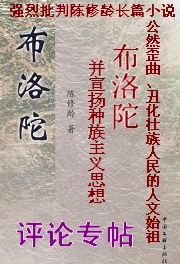 强烈批判陈修龄长篇小说
布洛陀
公然歪曲、丑化壮族人民的人文始祖
布洛陀
并宣扬种族主义思想
陈修龄 著
评论专帖